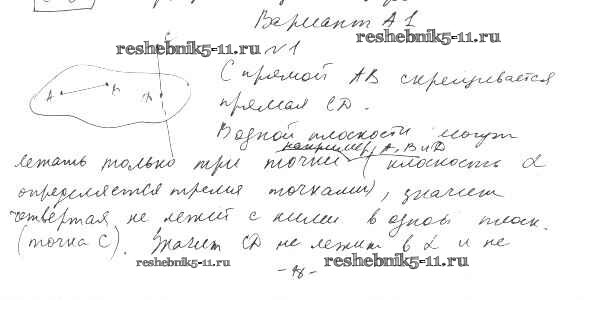 Вариант А1
reshebnik5-11.ru
reshebnik5-11.ru
N1
C
С прямой АВ скрещивается
A B D
прямая CD.
В одной плоскости могут
например, А, В и D
лежать только три точки (плоскость α
определяется тремя точками), значит
четвёртая не лежит с ними в одной плоск.
(точка С). Значит CD не лежит в α и не
reshebnik5-11.ru
reshebnik5-11.ru